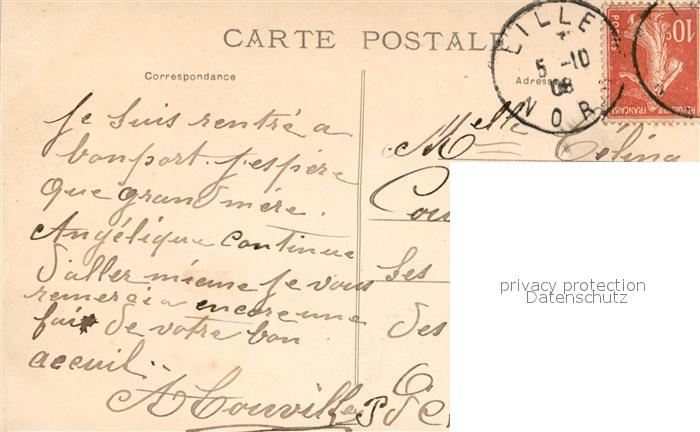 CARTE POSTALE
Correspondance
Adres
LILLE
5 -10
08
NOR
10c
POSTES
REPUBLIQUE FRANÇAISE
Je suis rentré a
bon port. J'espère
que grand mère.
Angélique continue
d'aller mieme je vous
remercie encore une
fois de votre bon
acceuil..
Melle Célina
Cou
des
privacy protection
Datenschutz